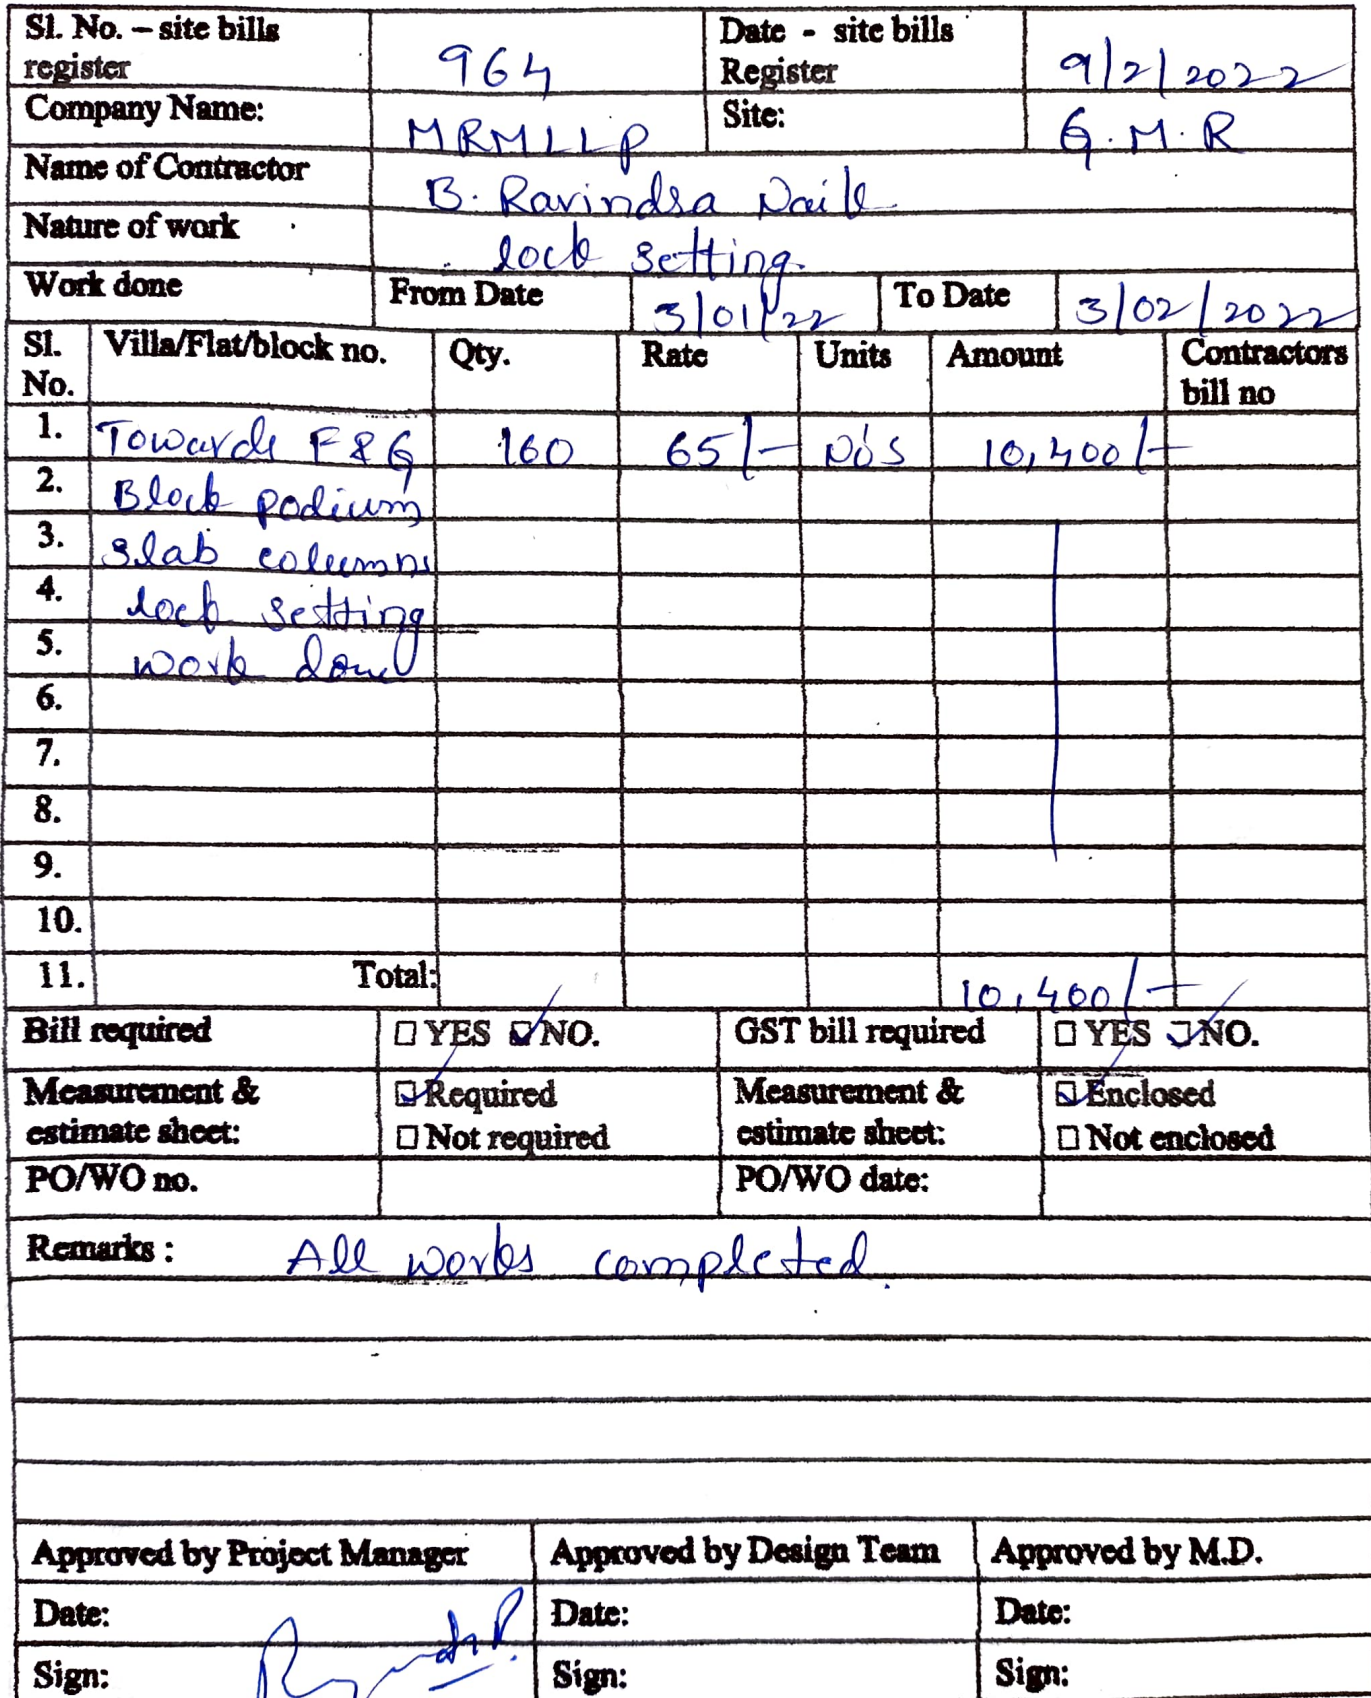 Sl. No. – site bills register 964 Date - site bills Register 9/2/2022
Company Name: MRMLLP Site: G.M.R
Name of Contractor B. Ravindra Naik
Nature of work lock setting.
Work done From Date 3/01/22 To Date 3/02/2022
Sl. No. Villa/Flat/block no. Qty. Rate Units Amount Contractors bill no
1. Towards F & G 160 65/- No's 10,400/-
2. Block podium
3. slab columns
4. lock setting
5. work done
6.
7.
8.
9.
10.
11. Total: 10,400/-
Bill required ☐ YES ☑ NO. GST bill required ☐ YES ☑ NO.
Measurement & estimate sheet: ☑ Required ☐ Not required Measurement & estimate sheet: ☑ Enclosed ☐ Not enclosed
PO/WO no. PO/WO date:
Remarks : All works completed.
Approved by Project Manager Approved by Design Team Approved by M.D.
Date: Date: Date:
Sign: Sign: Sign: